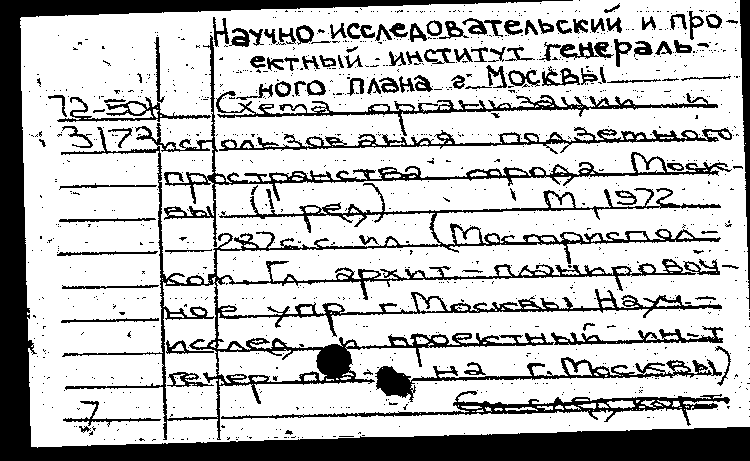 Научно-исследовательский и про-
ектный институт генераль-
ного плана г. Москвы
72-50К Схема организации и
3172 использования подземного
пространства города Моск-
вы. (1 ред.) М., 1972
287с.с ил. (Мосгориспол-
ком. Гл. архит-планировоч-
ное упр г. Москвы Науч.-
исслед. и проектный ин-т
генер. пла- на г. Москвы)
7 См след карт